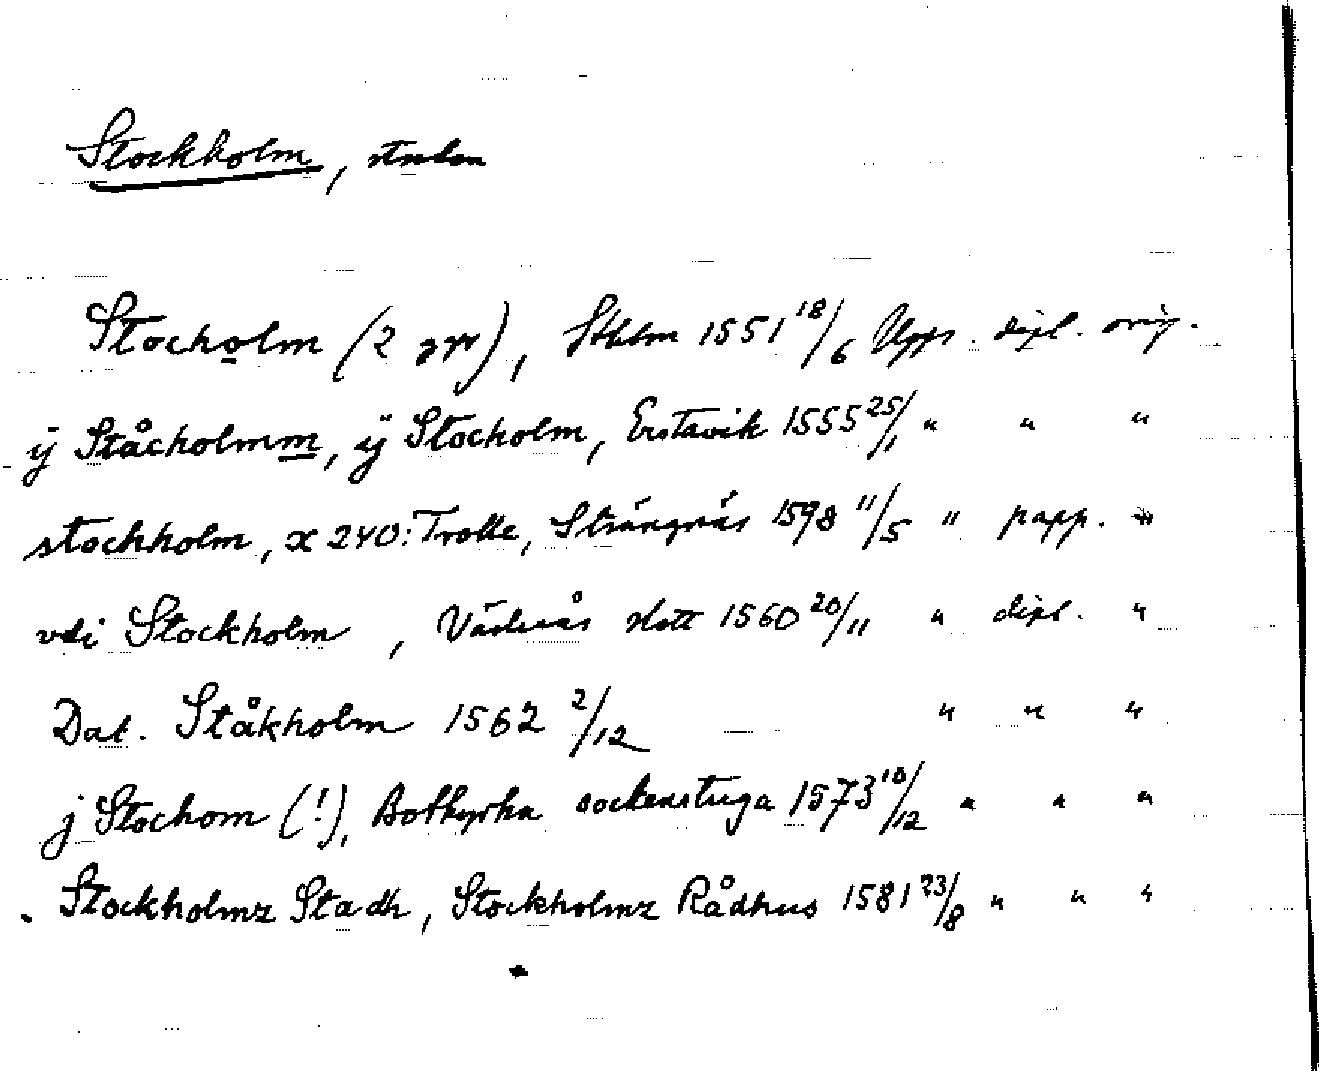 Stockholm, staden
Stocholm (2 ggr), Sthlm 1551 18/6 Upps. dipl. orig.
ÿ Ståcholmm, ÿ Stocholm, Erstavik 1555 25/1 " " "
stockholm, x 240: Trolle, Strängnäs 1598 11/5 " papp. "
vdi Stockholm, Västerås slott 1560 20/11 " dipl. "
Dat. Ståkholm 1562 2/12 " " "
j Stochom (!), Botkyrka sockenstuga 1573 10/12 " " "
Stockholmz Stadh, Stockholmz Rådhus 1581 23/8 " " "